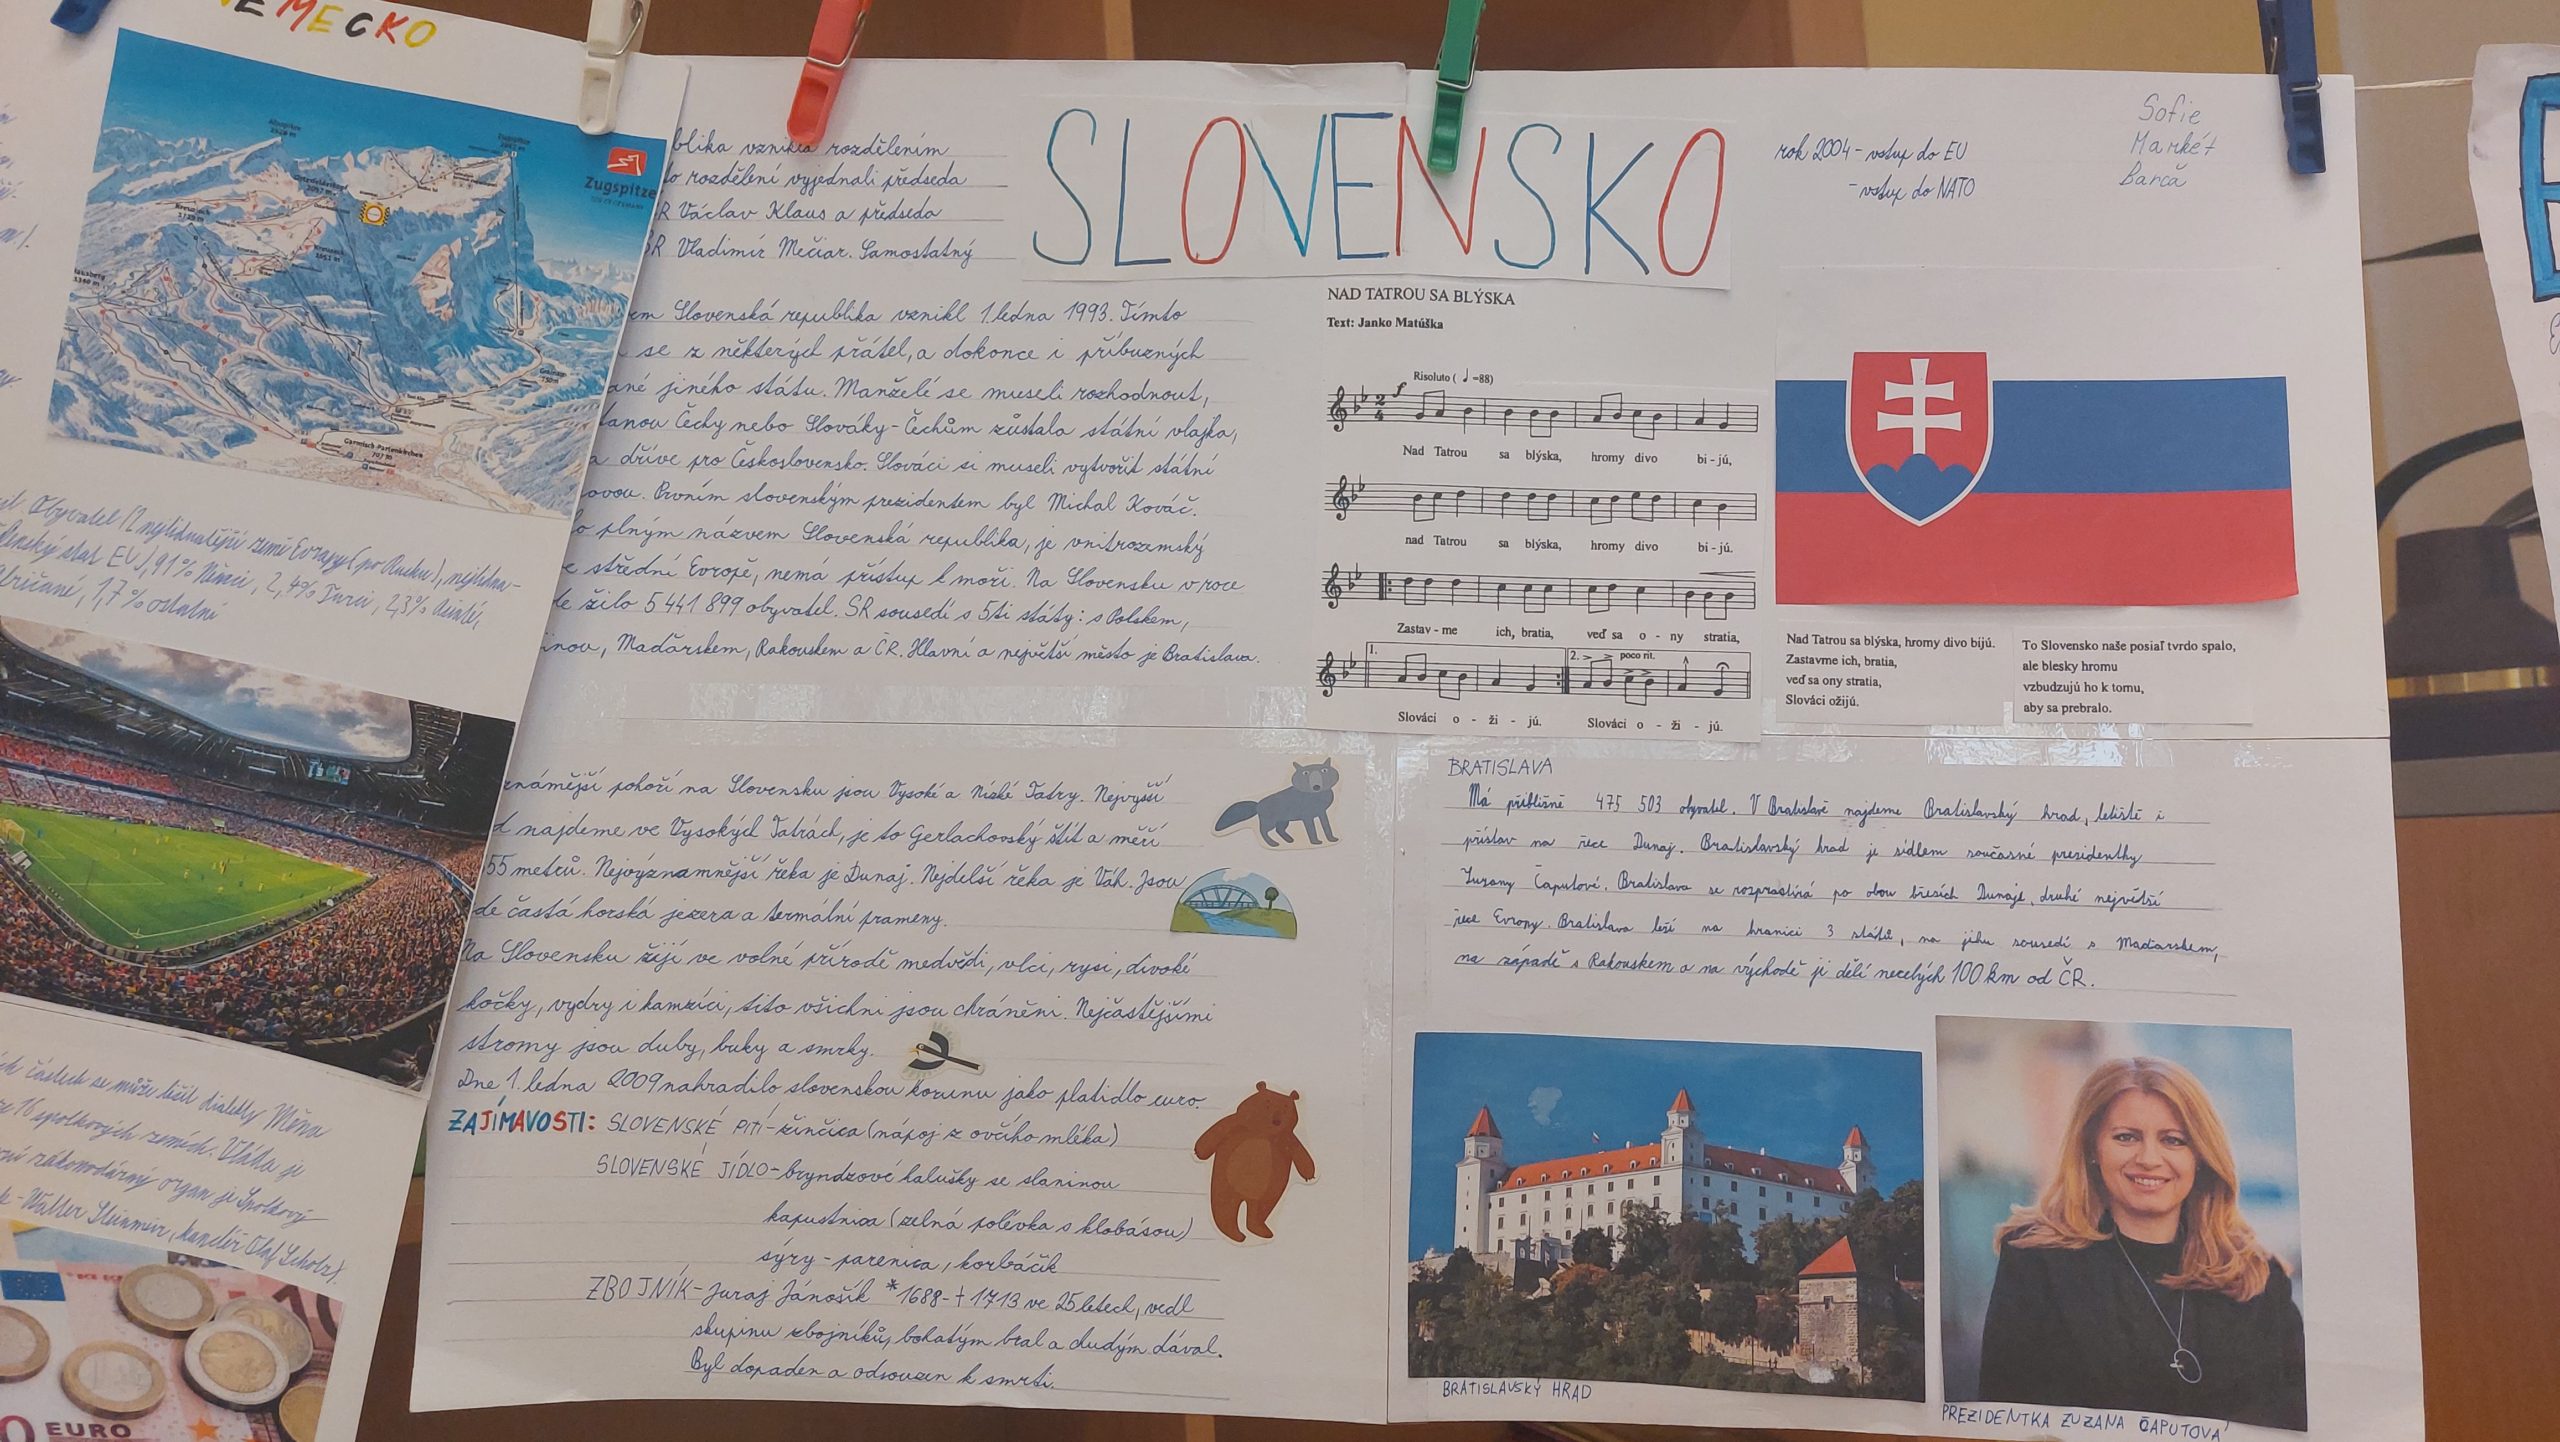 NEMECKO
Zugspitze
Garmisch-Partenkirchen
Obyvatel (2 nejlidnatější země Evropy (po Rusku), nejlidna-
členský stát EU), 91% Němci, 2,4% Turci, 2,3% Asiaté,
Afričané, 1,7% ostatní
částech se může lišit dialekty Měna
16 spolkových zemích. Vláda je
zákonodárný orgán je Spolkový
- Walter Steinmeir, kancléř Olaf Scholz).
EURO
SLOVENSKO
blika vznikla rozdělením
rozdělení vyjednali předseda
ČR Václav Klaus a předseda
SR Vladimír Mečiar. Samostatný
Slovenská republika vznikl 1. ledna 1993. Tímto
se z některých přátel, a dokonce i příbuzných
jiného státu. Manželé se museli rozhodnout,
Čechy nebo Slováky - Čechům zůstala státní vlajka,
dříve pro Československo. Slováci si museli vytvořit státní
novou. Prvním slovenským prezidentem byl Michal Kováč.
plným názvem Slovenská republika, je vnitrozemský
ve střední Evropě, nemá přístup k moři. Na Slovensku v roce
žilo 5 441 899 obyvatel. SR sousedí s 5ti státy: s Polskem,
inou, Maďarskem, Rakouskem a ČR. Hlavní a největší město je Bratislava.
známější pohoří na Slovensku jsou Vysoké a Nízké Tatry. Nejvyšší
najdeme ve Vysokých Tatrách, je to Gerlachovský štít a měří
55 metrů. Nejvýznamnější řeka je Dunaj. Nejdelší řeka je Váh. Jsou
de častá horská jezera a termální prameny.
Na Slovensku žijí ve volné přírodě medvědi, vlci, rysi, divoké
kočky, vydry i kamzíci, tito všichni jsou chráněni. Nejčastějšími
stromy jsou duby, buky a smrky.
Dne 1. ledna 2009 nahradilo slovenskou korunu jako platidlo euro.
ZAJÍMAVOSTI: SLOVENSKÉ PITÍ - žinčica (nápoj z ovčího mléka)
SLOVENSKÉ JÍDLO - bryndzové halušky se slaninou
kapustnica (zelná polévka s klobásou)
sýry - parenica, korbáčik
ZBOJNÍK - Juraj Jánošík *1688 - †1713 ve 25 letech, vedl
skupinu zbojníků, bohatým bral a chudým dával.
Byl dopaden a odsouzen k smrti.
NAD TATROU SA BLÝSKA
Text: Janko Matúška
Risoluto ( ♩ =88)
Nad Tatrou sa blýska, hromy divo bi - jú,
nad Tatrou sa blýska, hromy divo bi - jú.
Zastav - me ich, bratia, veď sa o - ny stratia,
1. 2. poco rit.
Slováci o - ži - jú. Slováci o - ži - jú.
rok 2004 - vstup do EU
- vstup do NATO
Sofie
Markét
Barča
Nad Tatrou sa blýska, hromy divo bijú.
Zastavme ich, bratia,
veď sa ony stratia,
Slováci ožijú.
To Slovensko naše posiaľ tvrdo spalo,
ale blesky hromu
vzbudzujú ho k tomu,
aby sa prebralo.
BRATISLAVA
Má přibližně 475 503 obyvatel. V Bratislavě najdeme Bratislavský hrad, letiště i
přístav na řece Dunaj. Bratislavský hrad je sídlem současné prezidentky
Zuzany Čaputové. Bratislava se rozprostírá po obou březích Dunaje, druhé největší
řece Evropy. Bratislava leží na hranici 3 států, na jihu sousedí s Maďarskem,
na západě s Rakouskem a na východě ji dělí necelých 100 km od ČR.
BRATISLAVSKÝ HRAD
PREZIDENTKA ZUZANA ČAPUTOVÁ